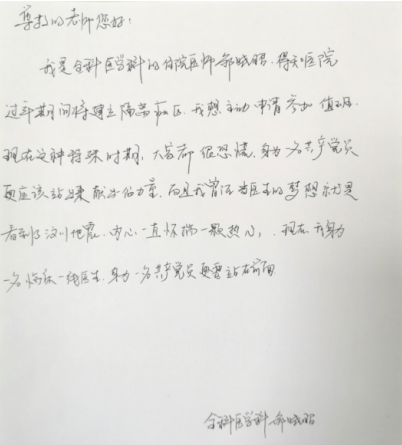 尊敬的老师您好：
我是全科医学科的住院医师郭晓昭，得知医院
过年期间将建立隔离病区，我想主动申请参加值班。
现在这种特殊时期，大家都很恐慌，身为一名共产党员
更应该站出来献出的力量，而且我曾经当医生的梦想就是
看到汶川地震，内心一直怀揣一颗热心，现在我身为
一名临床一线医生，身为一名共产党员更要站在前面
全科医学科 郭晓昭